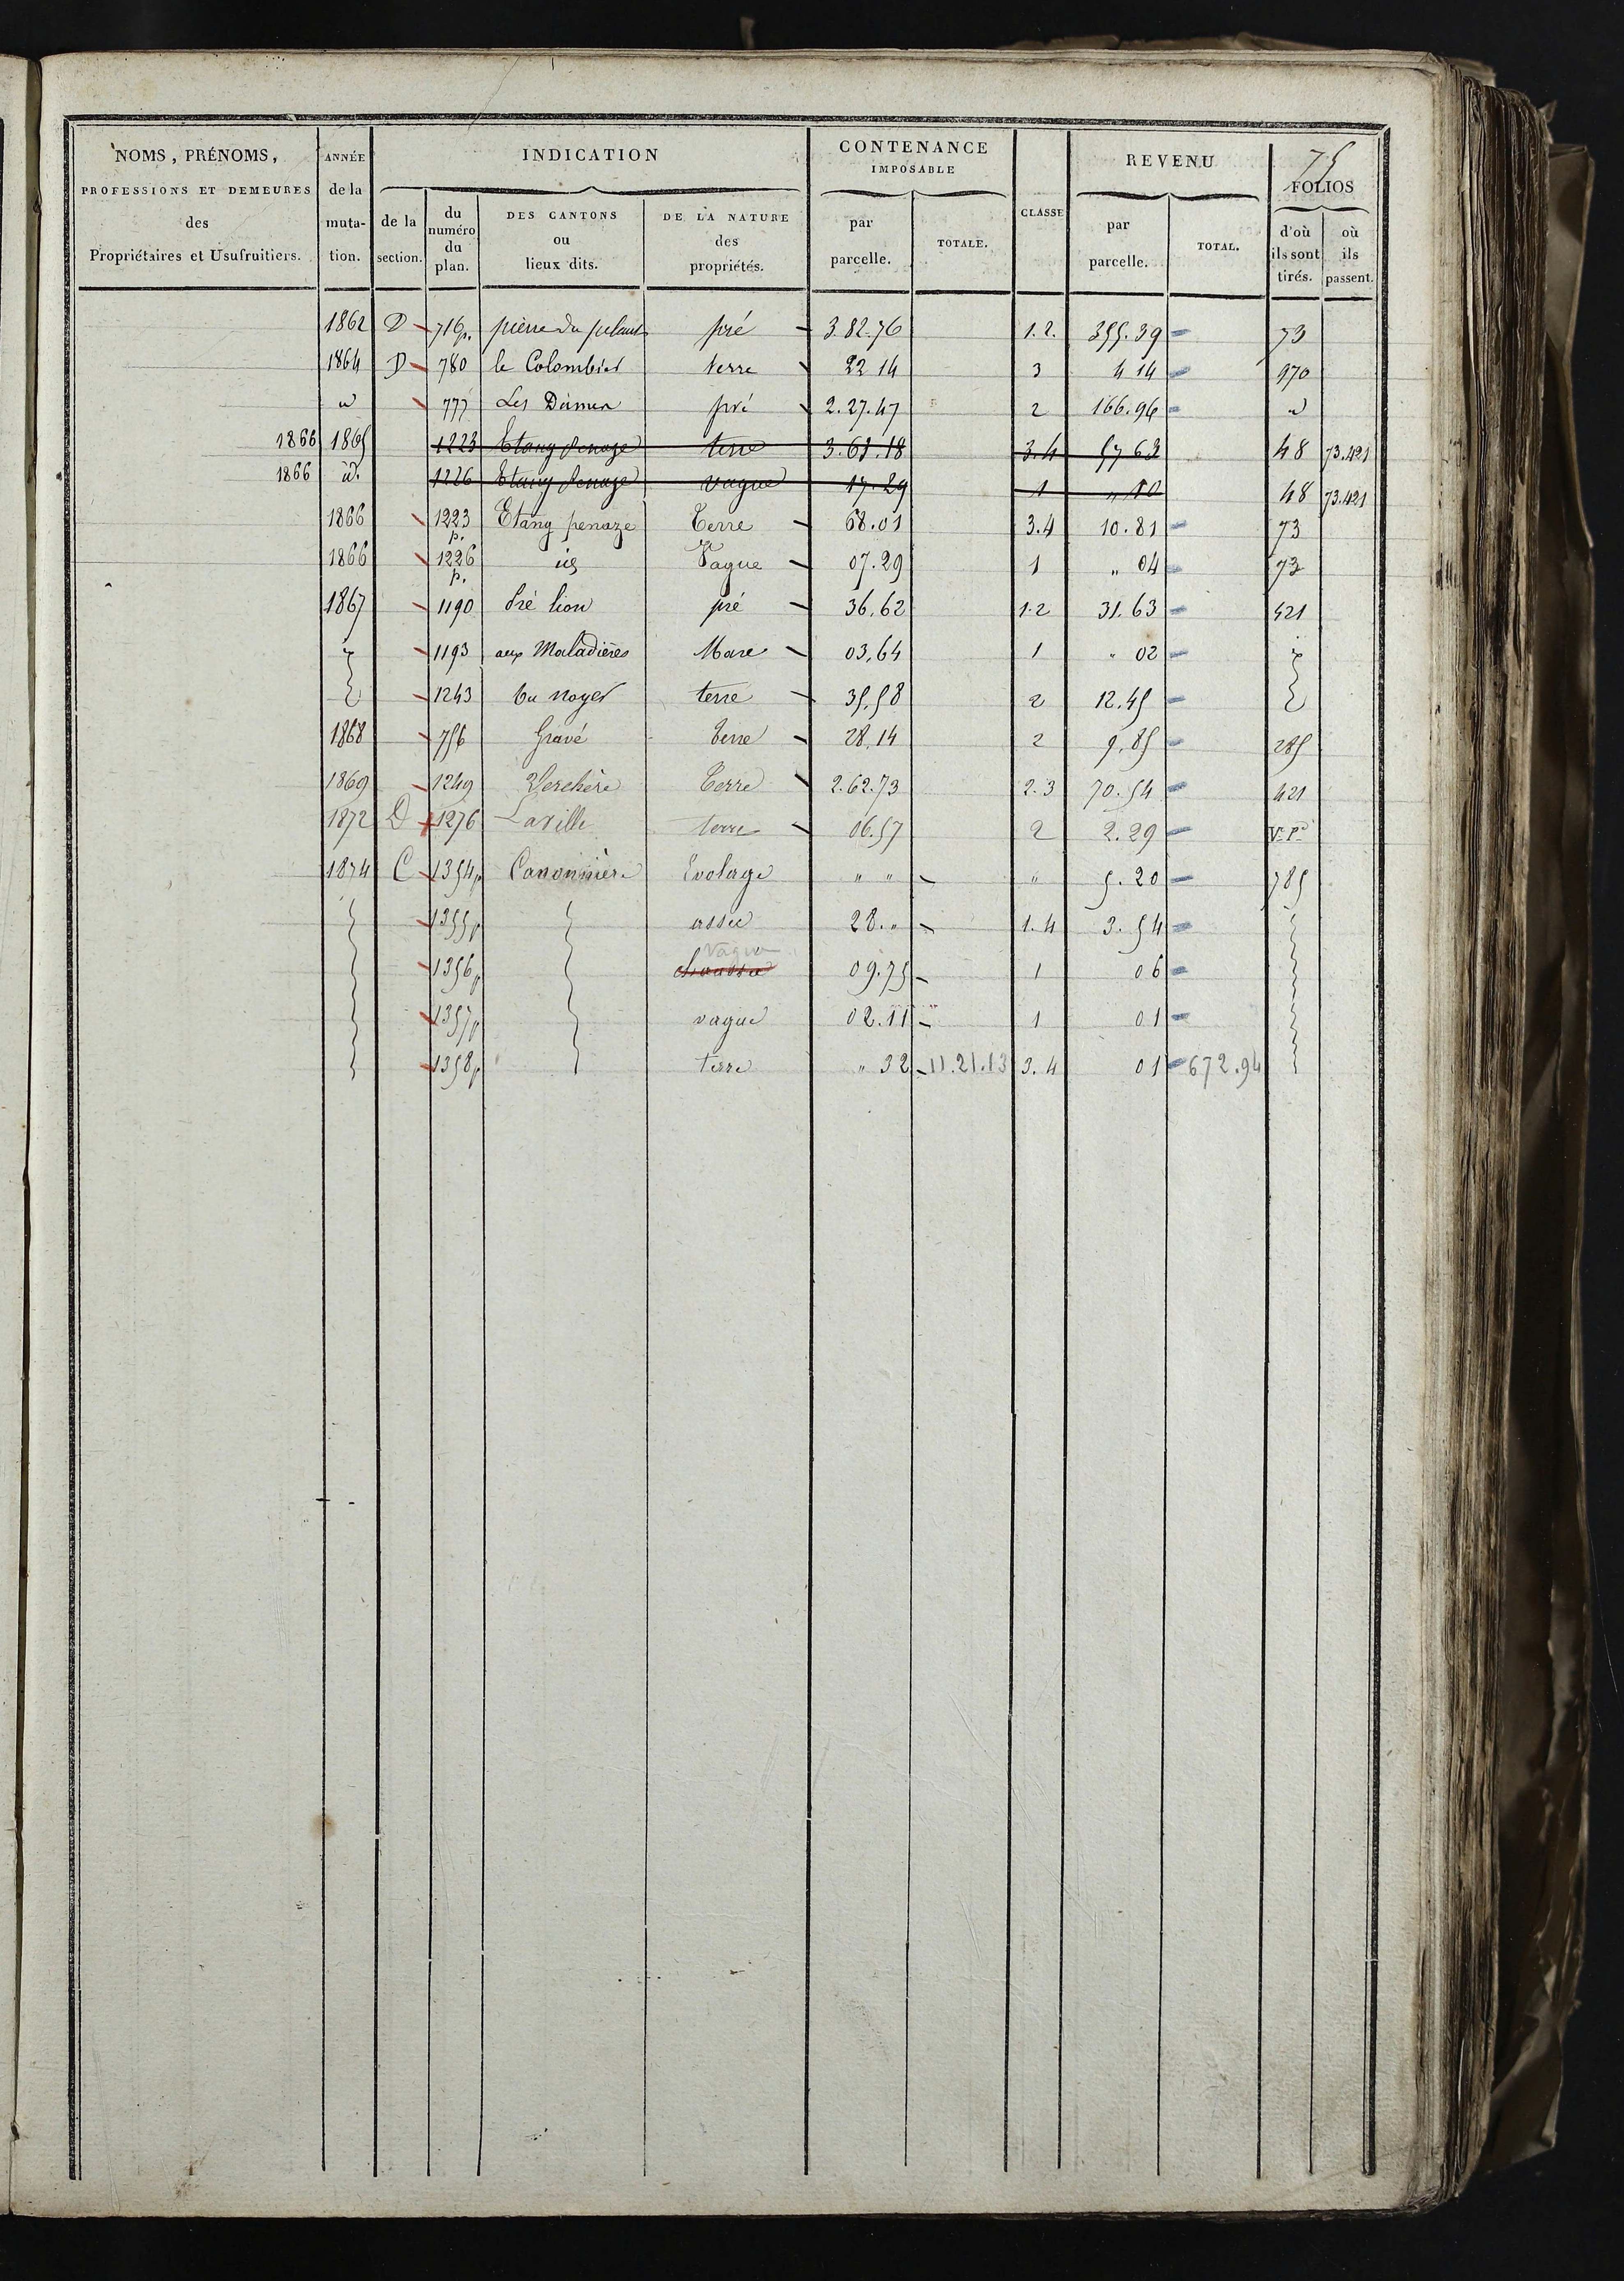 75
NOMS, PRÉNOMS, PROFESSIONS ET DEMEURES des Propriétaires et Usufruitiers.
ANNÉE de la muta-tion.
INDICATION
de la section.
du numéro du plan.
DES CANTONS ou lieux dits.
DE LA NATURE des propriétés.
CONTENANCE IMPOSABLE
par parcelle.
TOTALE.
CLASSE
REVENU
par parcelle.
TOTAL.
FOLIOS
d'où ils sont tirés.
où ils passent.
1862 D 716 p. pierre du pré 3.82.76 1.2. 355.39 73
1864 D 780 le Colombier terre 22 14 3 4 14 970
id 777 Les Dîmes pré 2.27.47 2 166.96 id
1866 1865 1223 Etang penaze terre 3.61.18 3.4 57 63 48 73.421
1866 id. 1226 Etang penaze vague 17.29 1 " 10 48 73.421
1866 1223 p. Etang penaze Terre 68.01 3.4 10.81 73
1866 1226 p. id Vague 07.29 1 " 04 73
1867 1190 Pré lion pré 36,62 1.2 31.63 421
1193 aux Maladières Mare 03,64 1 " 02
1243 Du noyer terre 35,58 2 12.45
1868 756 Gravé terre 28,14 2 9.85 285
1869 1249 Verchère Terre 2.62.73 2.3 70.54 421
1872 D 1276 Laville terre 06.57 2 2.29 
1874 C 1354 p Canonnière Evolage " " " 5.20 785
1355 p assec 28." 1.4 3.54
1356 p chaussée vague 09.75 1 06
1357 p vague 02.11 1 01
1358 p terre " 32 11.21.13 3.4 01 672.94